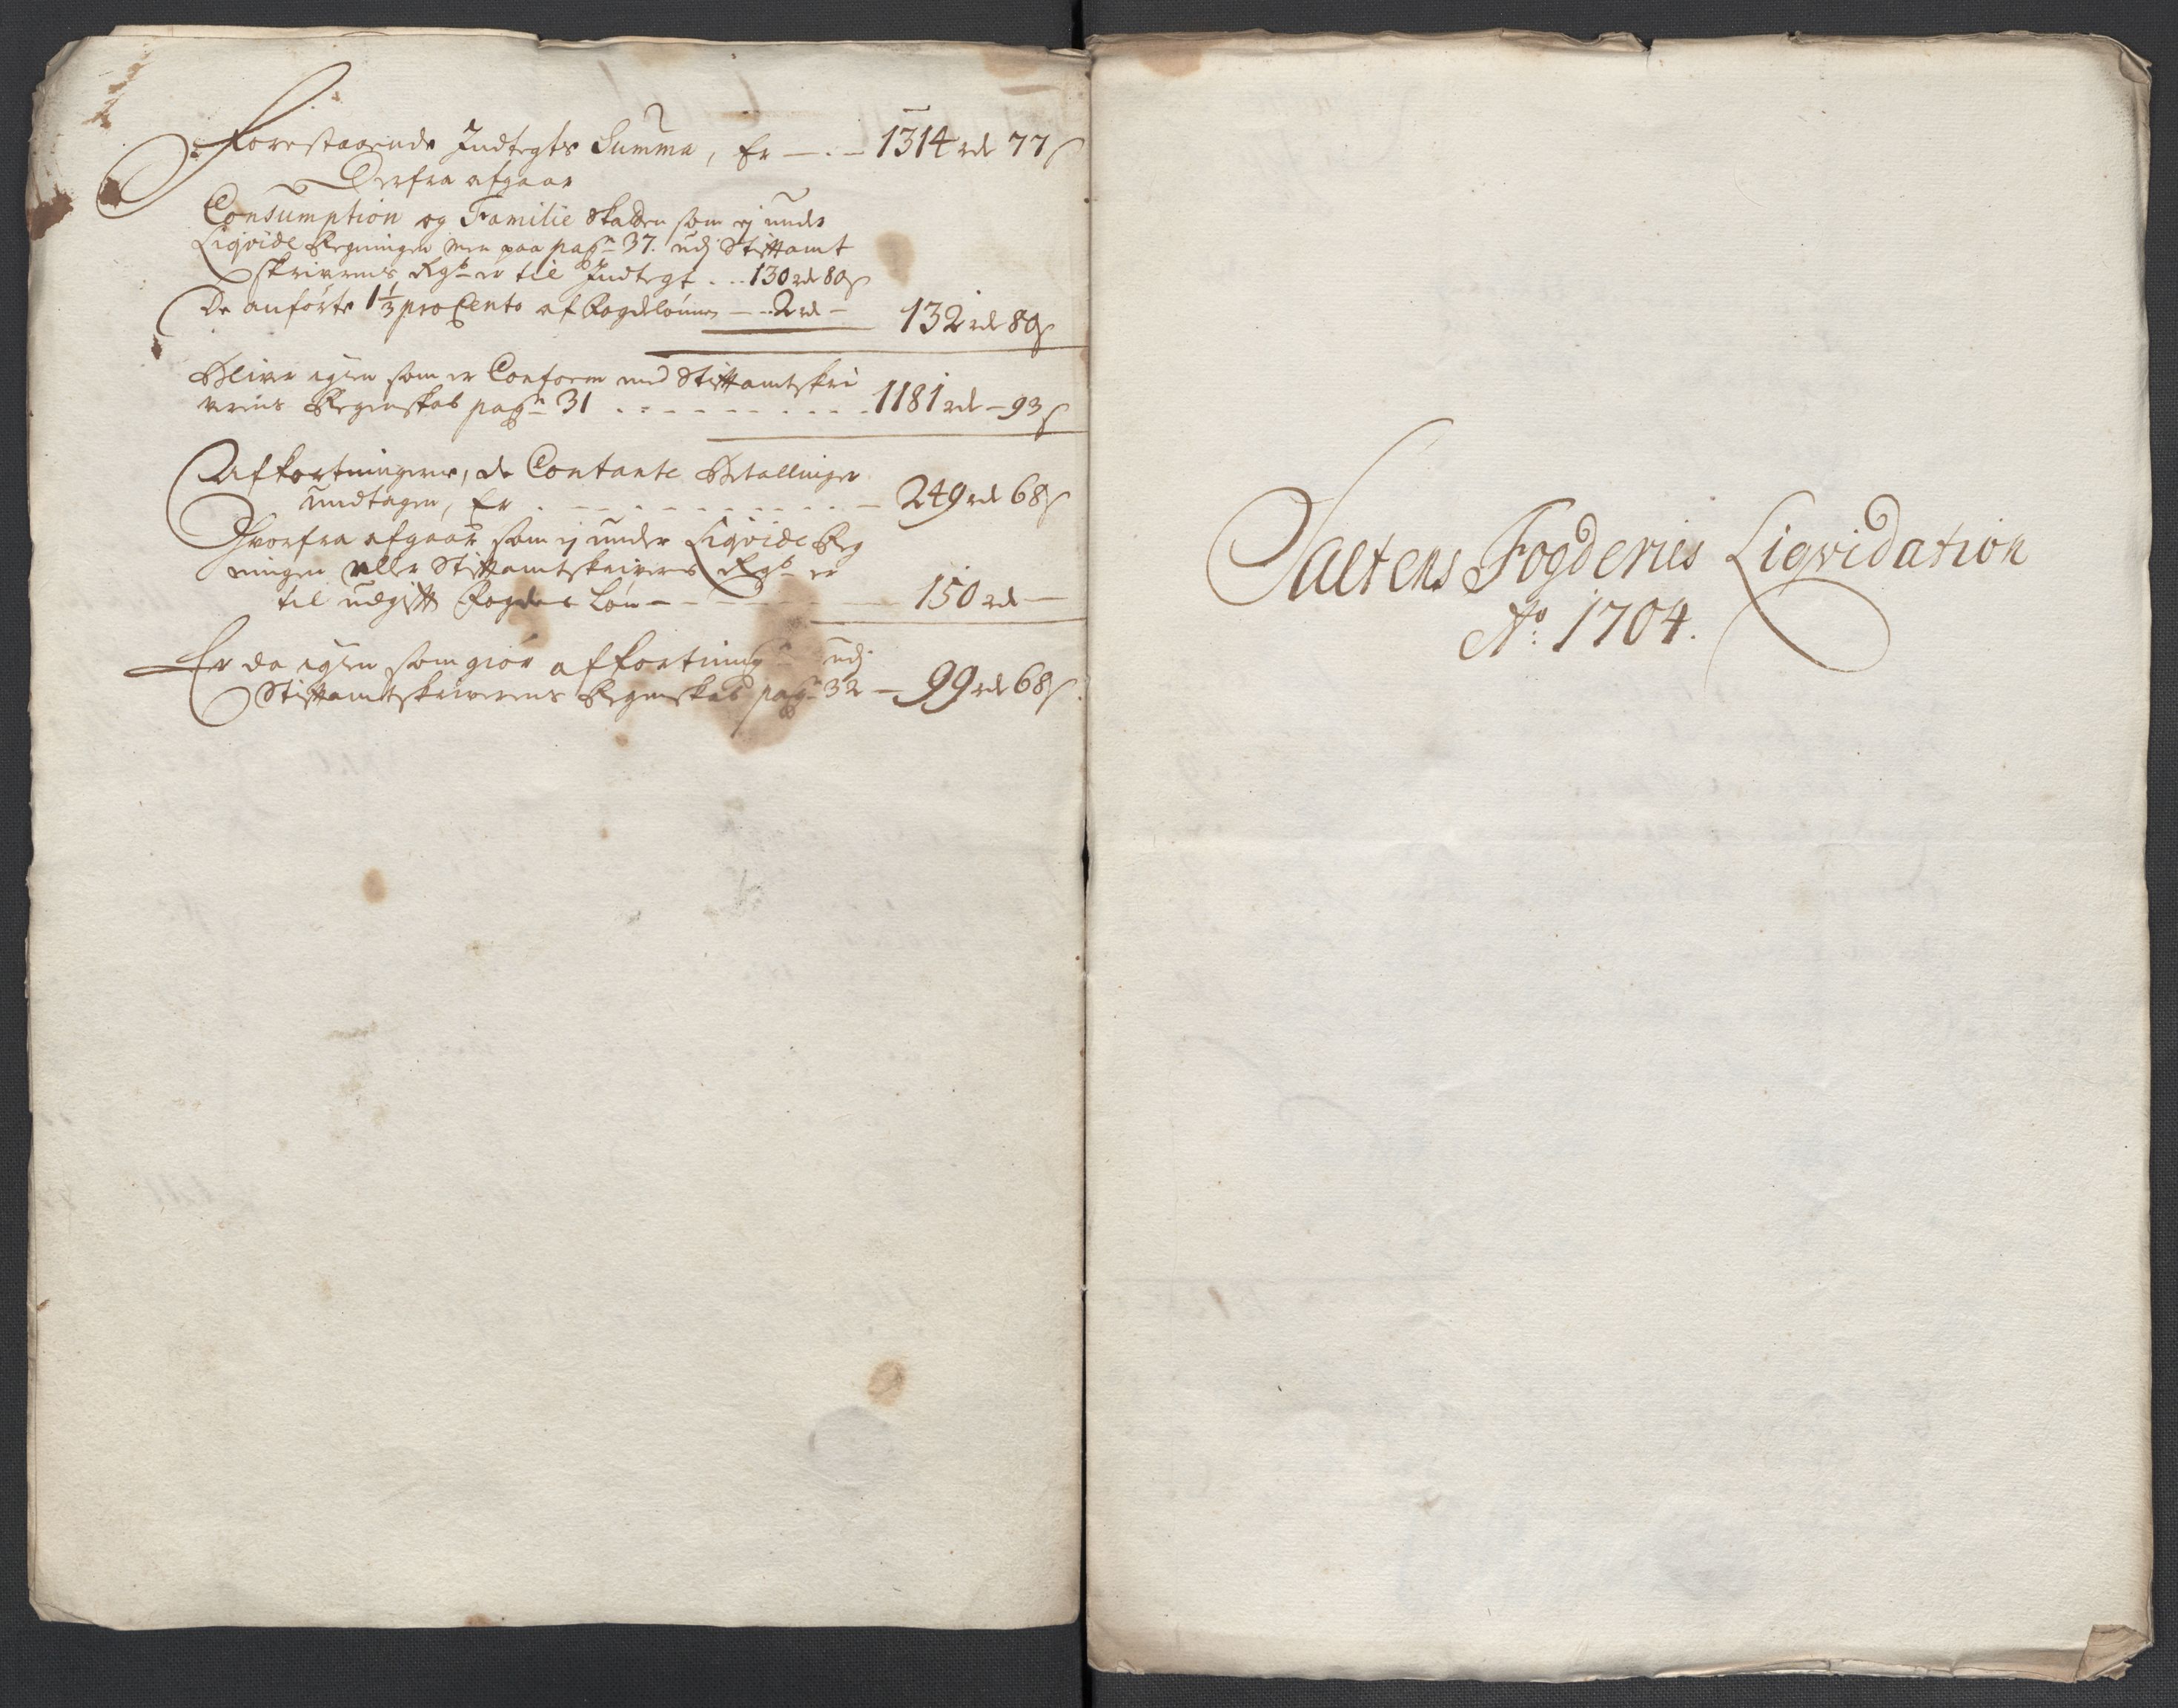 Forestaaende Indtegts Summa, Er — . — 1314 rd 77 s
Derfra afgaar
Consumption og Familie Skatten som ej under
Liqvide Regningen men paa pagn 37. udj Stiftamt
skrivernis Rgsk er til Indtegt . . . 130 rd 80 s
De anförte 1 1/3 pro Cento af Fogdelönnen — . 2 rd — 132 rd 80 s
Blive igien som er Conform med Stiftamtskri
verens Regenskab pagn 31 . . . . . . . . . . 1181 rd — 93 s
Afkortningerne, de Contante Betallinger
undtagen, Er . — . . . . . . . . . — 249 rd 68 s
Hvorfra afgaar som ej under Liqvide Reg
ningen eller Stiftamtskriverens Rgsk er
til udgift Fogdens Lön — — — — — 150 rd —
Er da igien som giör afkortning udj
Stiftamtskriverens Regenskab pagn 32 — 99 rd 68 s.
Saltens Fogderies Liqvidation
Ao: 1704.